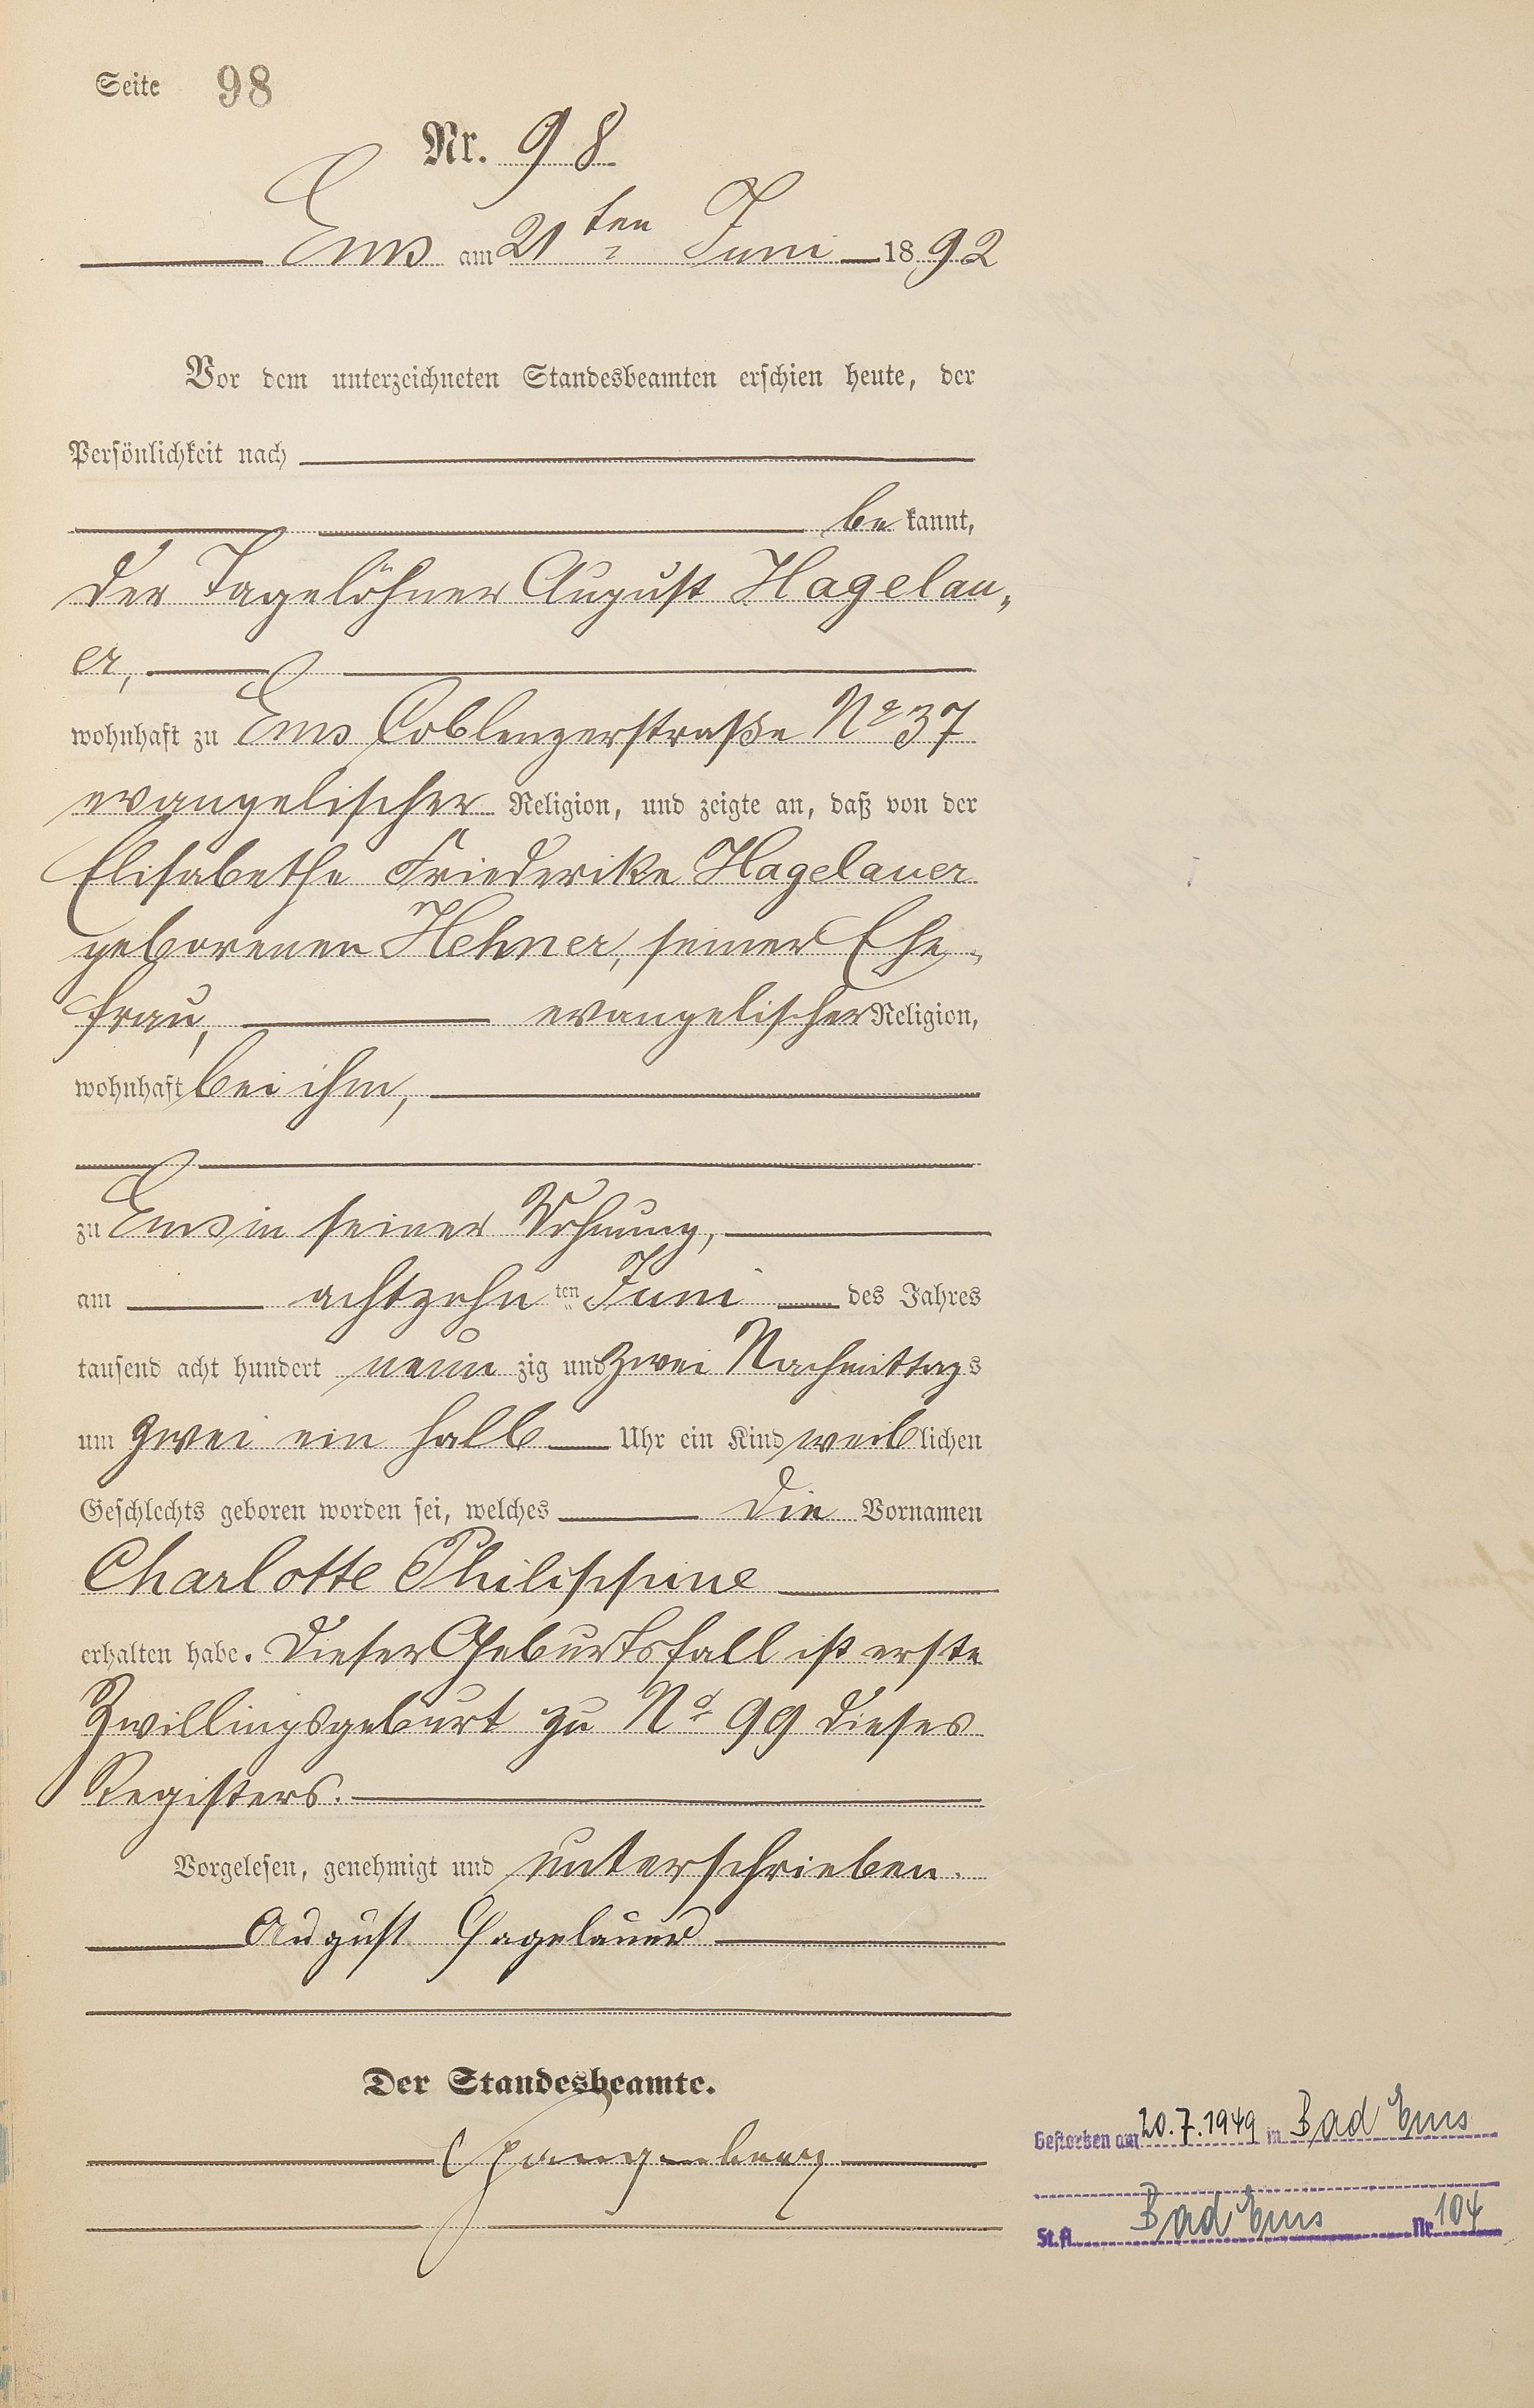 Seite 98
Nr. 98
Ems am 21ten Juni 1892
Vor dem unterzeichneten Standesbeamten erschien heute, der
Persönlichkeit nach
bekannt,
der Tagelöhner August Hagelau„
er,
wohnhaft zu Ems Coblenzerstraße No 37
evangelischer Religion, und zeigte an, daß von der
Elisabethe Friederike Hagelauer
geborenen Hehner, seiner Ehe„
frau, evangelischer Religion,
wohnhaft bei ihm,
zu Ems in seiner Wohnung,
am achtzehnten Juni des Jahres
tausend acht hundert neunzig und zwei Nachmittags
um zwei ein halb Uhr ein Kind weiblichen
Geschlechts geboren worden sei, welches die Vornamen
Charlotte Philippine
erhalten habe. Dieser Geburtsfall ist erste
Zwillingsgeburt zu No 99 dieses
Registers.
Vorgelesen, genehmigt und unterschrieben.
August Hagelauer
Der Standesbeamte.
Gestorben am 20.7.1949 in Bad Ems
St.A. Bad Ems Nr. 104